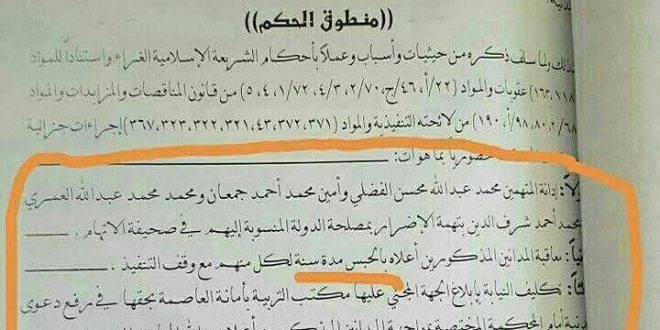 ((منطوق الحكم))
لذلك ولما سلف ذكره من حيثيات وأسباب وعملاً بأحكام الشريعة الإسلامية الغراء واستناداً للمواد
(١٦٣،١١٨) عقوبات والمواد (٢٢/أ، ٤٦/ج، ٢/٧٠، ٤/٣، ١/٧٢، ٤، ٥) من قانون المناقصات والمزايدات والمواد
(٢/٦٨، ٨٠، ٩٨/أ، ١٩٠) من لائحته التنفيذية والمواد (٣٦٧،٣٢٣،٣٢٢،٣٢١،٤٣،٣٧٢،٣٧١) إجراءات جزائية
حضورياً بما هو آت:
أولاً: إدانة المتهمين محمد عبدالله محسن الفضلي وأمين محمد أحمد جمعان ومحمد محمد عبدالله العمري
محمد أحمد شرف الدين بتهمة الإضرار بمصلحة الدولة المنسوبة إليهم في صحيفة الاتهام.
ثانياً: معاقبة المدانين المذكورين أعلاه بالحبس مدة سنة لكل منهم مع وقف التنفيذ.
ثالثاً: تكليف النيابة بإبلاغ الجهة المجني عليها مكتب التربية بأمانة العاصمة بحقها في رفع دعوى
مدنية أمام المحكمة المختصة بمواجهة المدانين المذكورين أعلاه